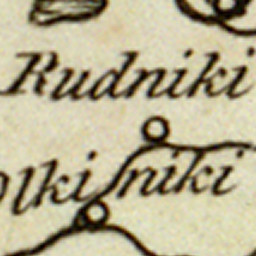 Rudniki
olkiſniki